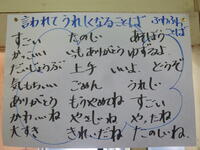 言われてうれしくなることば ふわふわことば
すごい たのしい あそぼう
かっこいい いつもありがとう ゆずるよ
だいじょうぶ 上手 いいよ。 どうぞ
気もちいい ごめん うれしい
ありがとう もうやめてね すごい
かわいいね やさしいね やったね
大すき きれいだね たのしいね。